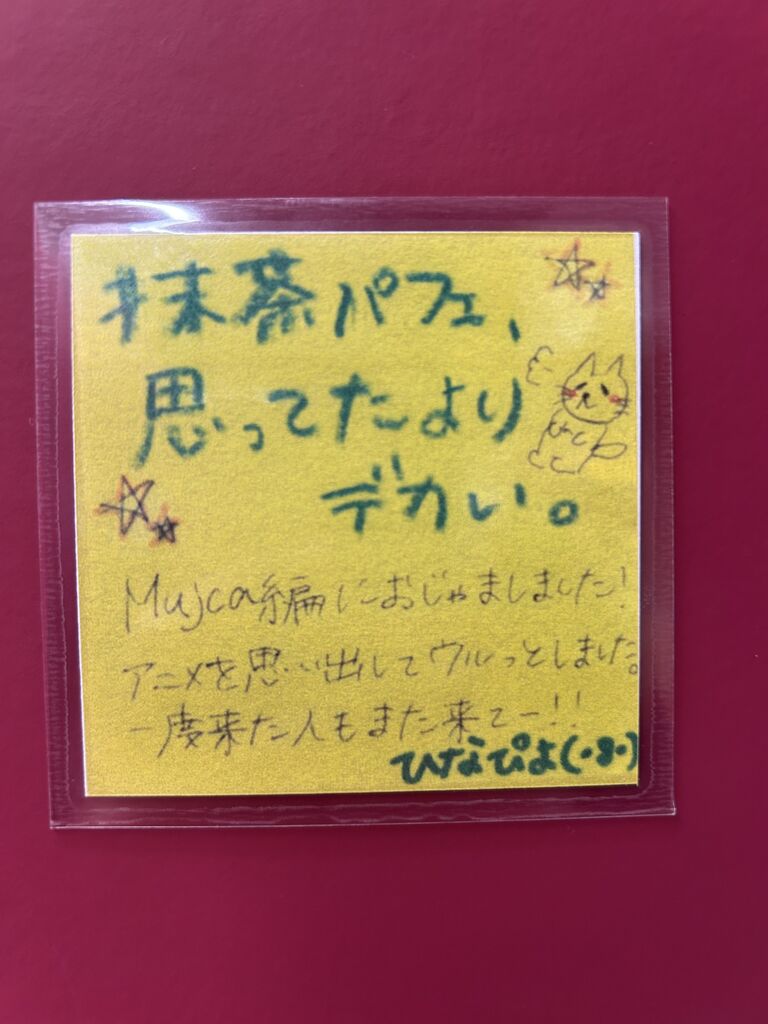 抹茶パフェ、
思ってたより
デカい。
Mujca編におじゃましました!
アニメを思い出してウルっとしました。
一度来た人もまた来てー!!
ひなぴよ(・8・)